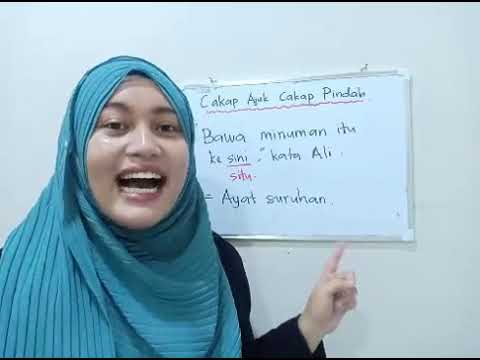 Cakap Ajuk Cakap Pindah
"Bawa minuman itu
ke sini," kata Ali.
situ.
= Ayat suruhan.